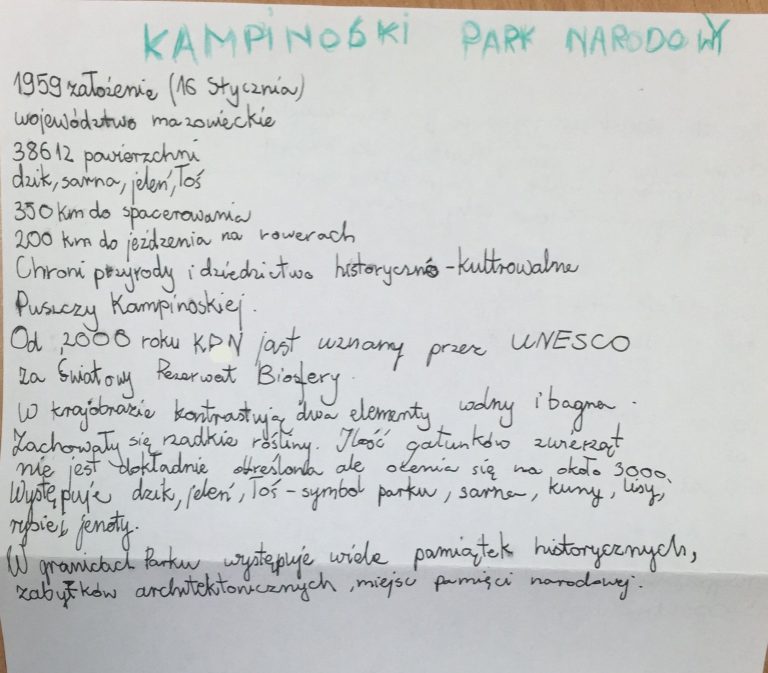 KAMPINOSKI PARK NARODOWY
1959 założenie (16 Stycznia)
województwo mazowieckie
38612 powierzchni
dzik, sarna, jeleń, Łoś
350 km do spacerowania
200 km do jeżdzenia na rowerach
Chroni przyrody i dziedzictwo historyczno-kultrowalne
Puszczy Kampinoskiej.
Od 2000 roku KPN jast uznany przez UNESCO
za Światowy Rezerwat Biosfery.
W krajobrazie kontrastują dwa elementy wodny i bagna.
Zachowały się rzadkie rośliny. Ilość gatunków zwierząt
nie jest dokładnie określona ale ocenia się na około 3000.
Występuje dzik, jeleń, Łoś - symbol parku, sarna, kuny, lisy,
rybie, jenoty.
W granicach Parku występuje wiele pamiątek historycznych,
zabytków architektonicznych, miejsc pamięci narodowej.